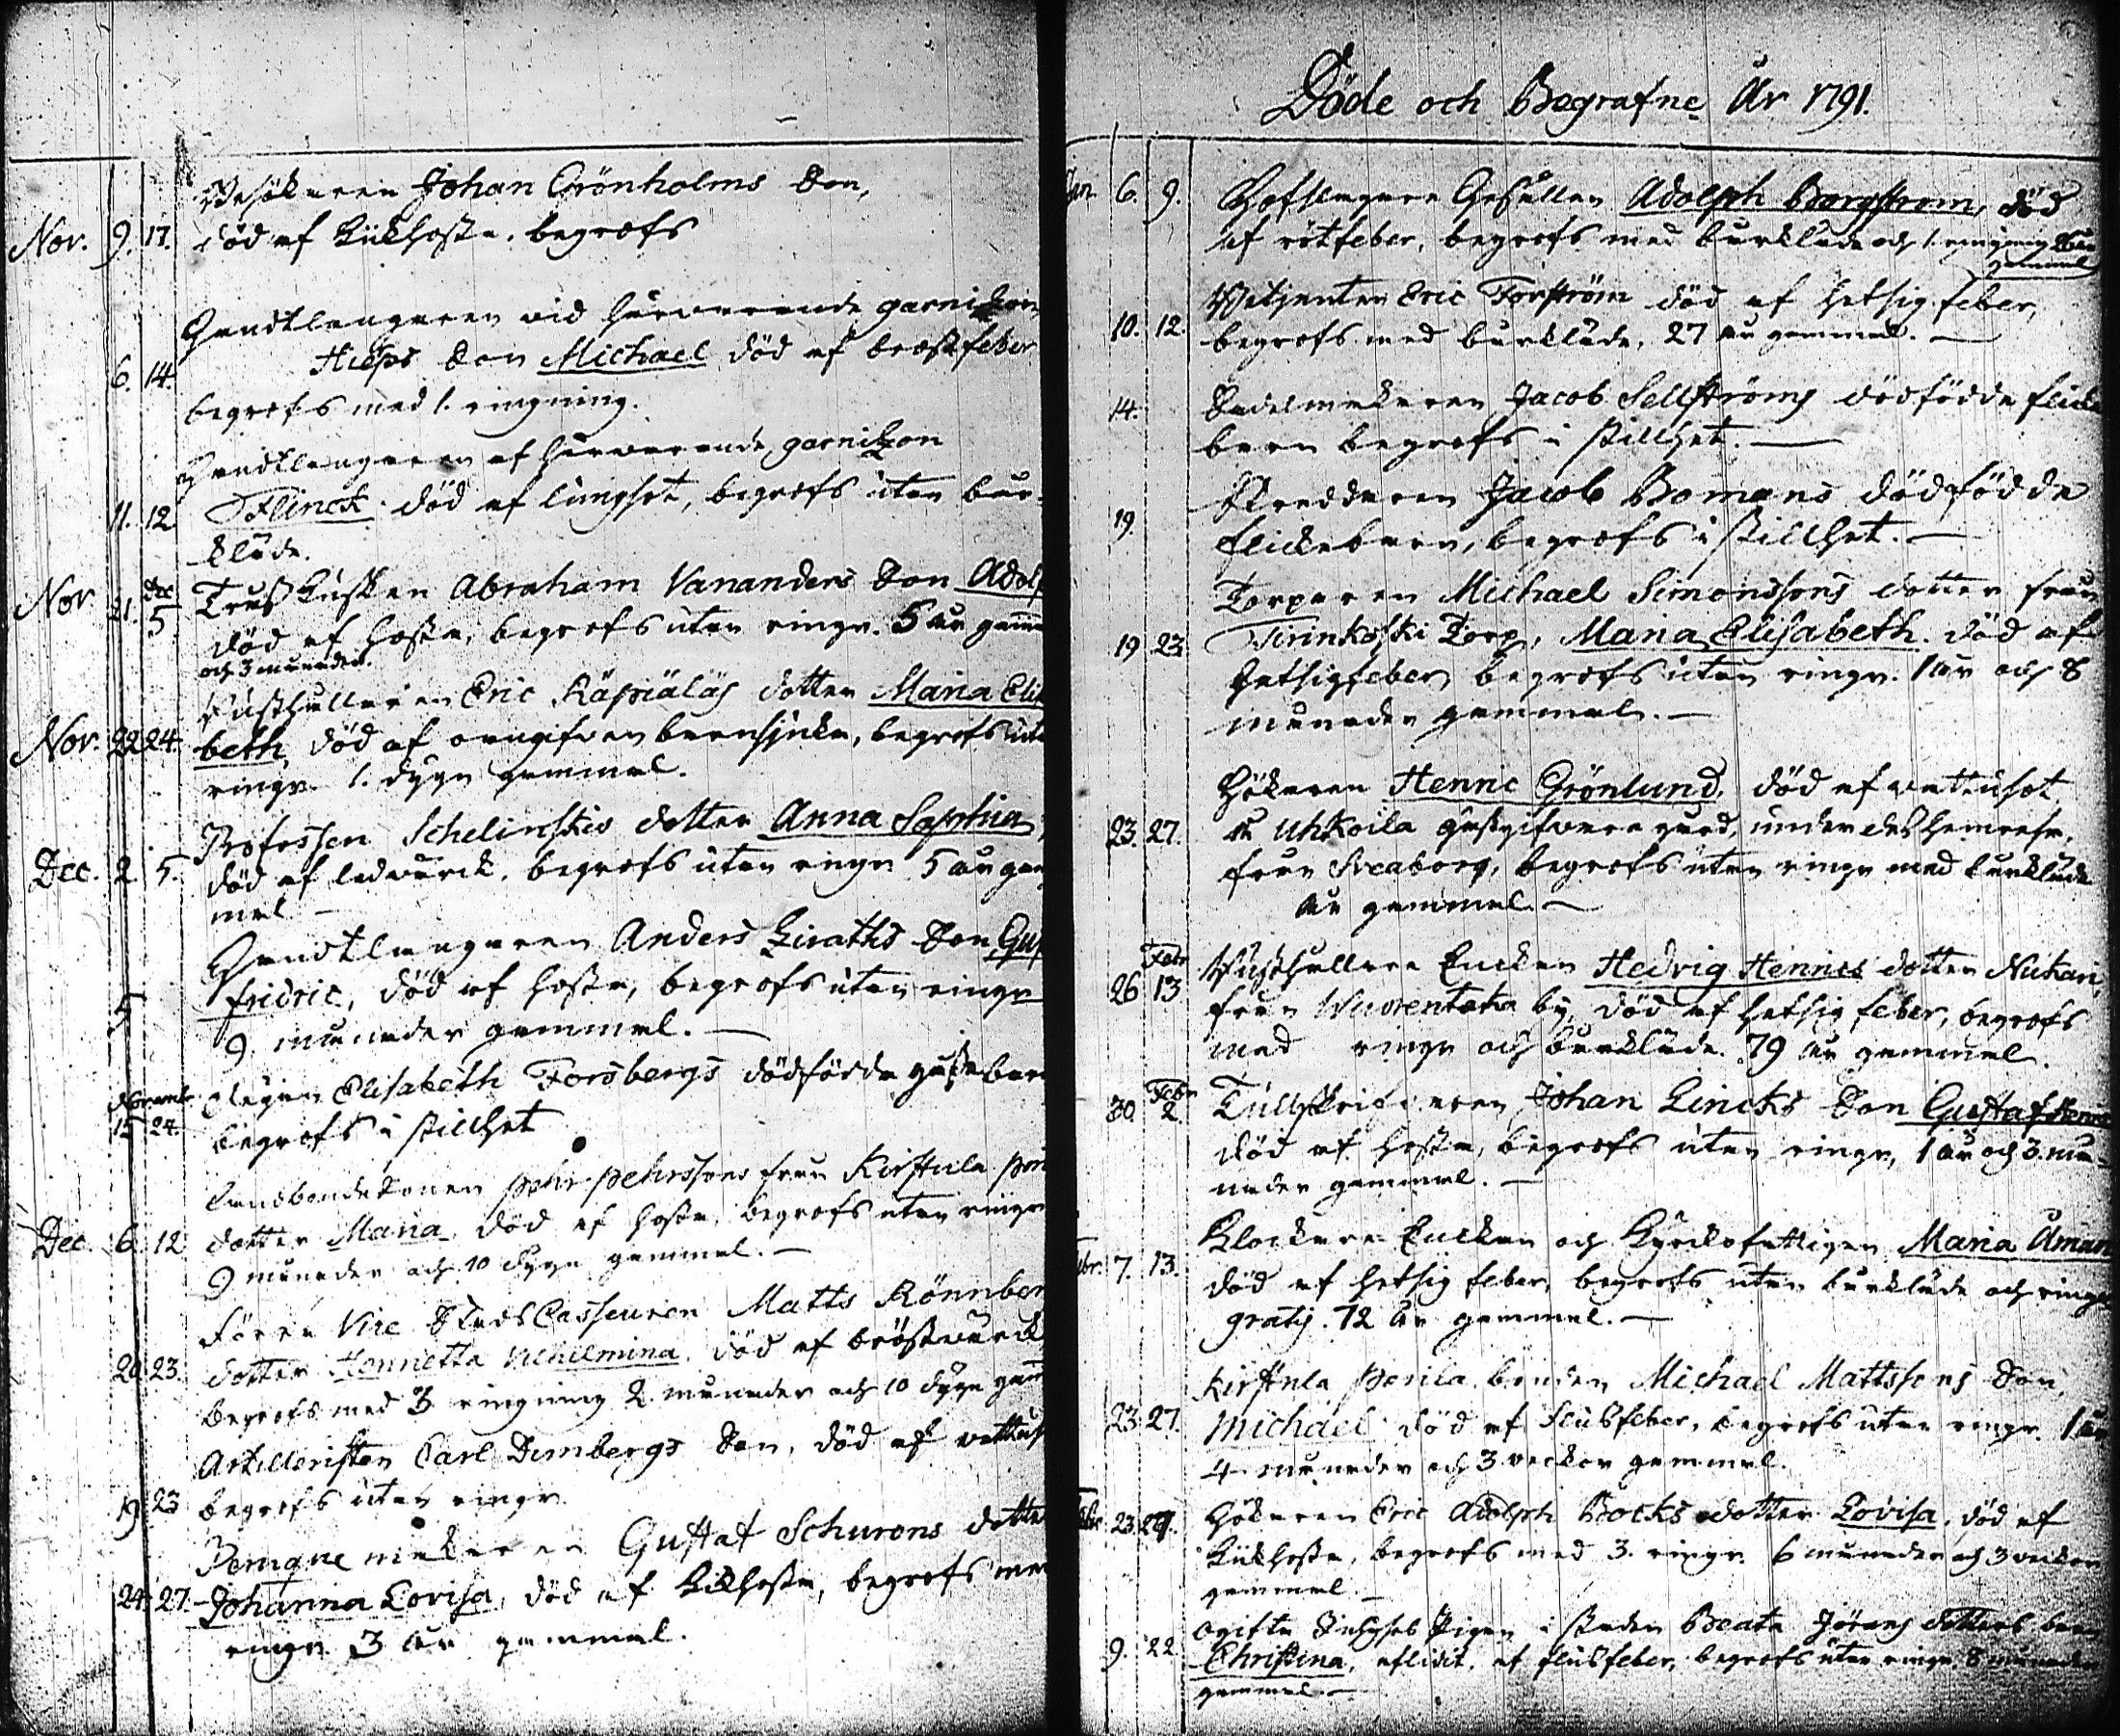 Besökaren Johan Grönholms Son,
Nov. 9. 17. död af Kikhosta. begrofs
Handtlangaren vid härvarande garnizon
Hieps Son Michael död af bröstfeber
6. 14.
begrofs med 1. ringning.
Handtlangaren af härvarande garnizon
11. 12 Flinck död af lungsot, begrofs utan bår-
kläde.
Nov 21. Dec 5 Kusken Abraham Vananders Son Adolp
död af hosta, begrofs utan ringn. 5 år gam
och 3 månader.
Rusthållaren Eric Käpiäläs dotter Maria Elisa
Nov. 22 24. beth, död af barnsjuka, begrofs uta
ringn. 1. dygn gammal.
Professen Schelinskis dotter Anna Sophia
Dec. 2. 5. död af ledvärck. begrofs utan ringn 5 år gam
mal
Handtlangaren Anders Liraths Son Gus
fridric, död af hosta, begrofs utan ringn
5
9 månader gammal.
Pigan Elisabeth Forsbergs dödfödda gossebarn
Novemb. 15 24. begrofs i stillhet
Landbonde Sonen Pehr Pehrssons från Kirstula
Dec. 6. 12 dotter Maria död af hosta, begrofs utan ringn
9 månader och 10 dygn gammal.
Förra Vice Stads Casseuren Matts Rönnber
20. 23. dotter Henrietta Vilhelmina död af bröstvärck
begrofs med 3 ringning 2. månader och 10 dygn gam
Artilleristen Carl Dimbergs Son, död af vattus
19. 23 begrofs utan ringn.
Peruque makaren Gustaf Schurons dotter
24. 27. Johanna Lovisa, död af Kikhosta, begrofs med
ringn. 3 år gammal.
Döde och Begrafne År 1791.
Jan. 6. 9. Hofslagare Gesällen Adolph Bergstrom, död
af rötfeber, begrofs med bårkläde och 1. ringning
gammal
Betjenten Eric Forström död af hetsig feber,
10. 12. begrofs med bårkläde, 27 år gammal.
14. Sadelmakaren Jacob Sellströms dödfödda flicke
barn begrofs i stillhet.
Skräddaren Jacob Bomans dödfödda
19. flickebarn, begrofs i stillhet.
Torparen Michael Simonssons dotter från
19 23 Torp, Maria Elisabeth. död af
hetsigfeber, begrofs utan ringn. 1 år och 8
månader gammal.
Hökaren Henric Grönlund, död af vattusot
23. 27. å Uhkoila gästgifvare gård, under dess hemresa
från Sveaborg, begrofs utan ringn med bårkläde
år gammal.
26 Febr 13 Rusthållare Enckan Hedvig Henrics dotter Nukari,
från by, död af hetsig feber, begrofs
med ringn och bårkläde. 79 år gammal.
30. Febr 2. Tullskrifvaren Johan Lincks Son Gustaf Henric
död af hosta, begrofs utan ringn, 1 år och 3. må-
nader gammal.
Klockare Enckan och Kyrckofattigen Maria Åman
Febr. 7. 13.
död af hetsig feber, begrofs utan bårkläde och ringn
gratis. 72 år gammal.
Kirstula Perila bonden Michael Mattssons Son,
23. 27. Michael död af fluss feber, begrofs utan ringn. 1 år
4 månader och 3 veckor gammal.
Febr. 23. 27. Hökaren Eric Adolph Bocks dotter Lovisa, död af
Kikhosta, begrofs med 3. ringn. 6 månader och 3 veckor
gammal.
ogifta Pigan i staden Beata Jörans dotters barn
9. 22 Christina, aflidit af flussfeber, begrofs utan ringn. 8 månader
gammal.